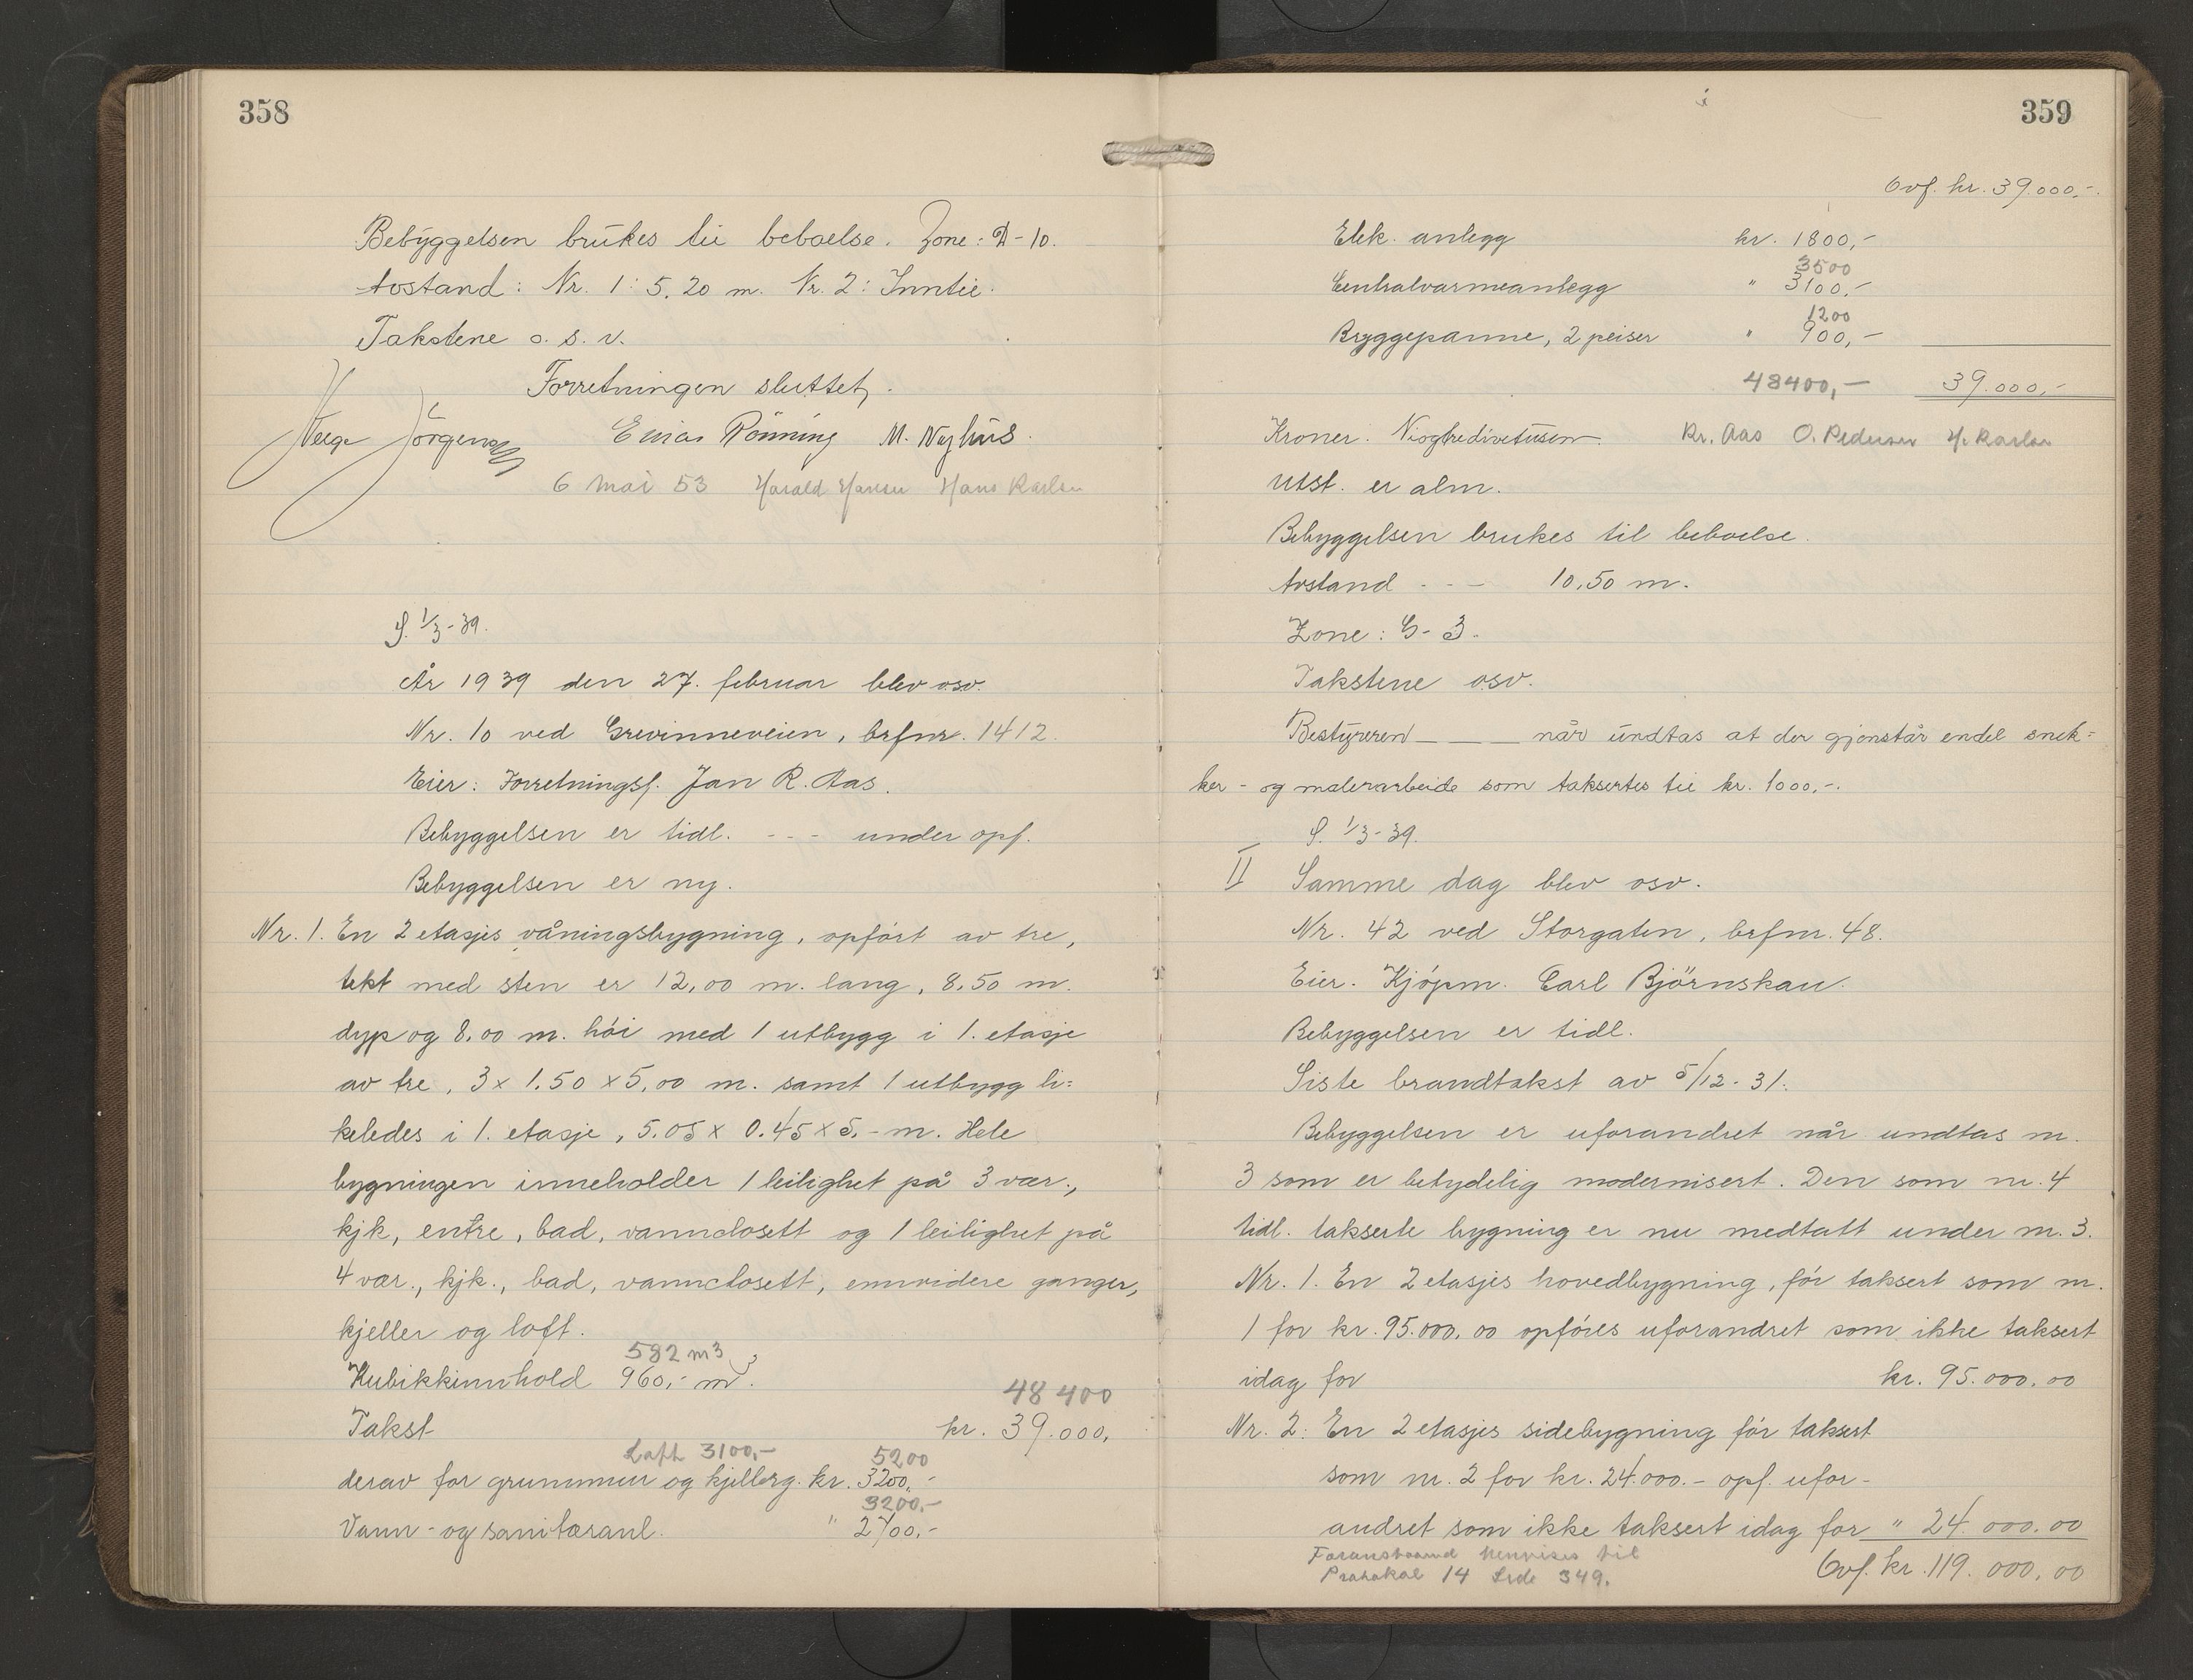 358
Bebyggelsen brukes til beboelse. Zone: D-10.
Avstand: Nr. 1: 5.20 m. Nr. 2: Inntil.
Takstene o. s. v.
Forretningen sluttet.
Helge Jörgensen Einar Rönning M. Nyhus.
6 mai 53 Harald Hansen Hans Karlsen
S. 1/3-39.
År 1939 den 27. februar blev osv.
Nr. 10 ved Grevinneveien, brfnr. 1412.
Eier: Forretningsf. Jan R. Aas.
Bebyggelsen er tidl. - - - under opf.
Bebyggelsen er ny.
Nr. 1. En 2 etasjes våningsbygning, opført av tre,
tekt med sten er 12,00 m. lang, 8,50 m.
dyp og 8,00 m. høi med 1 utbygg i 1. etasje
av tre, 3 x 1.50 x 5,00 m. samt 1 utbygg li=
keledes i 1. etasje, 5.05 x 0.45 x 5.- m. Hele
bygningen inneholder 1 leilighet på 3 vær.,
kjk, entre, bad, vannclosett og 1 leilighet på
4 vær., kjk., bad, vannclosett, ennvidere ganger,
kjeller og loft.
582 m3
Kubikkinnhold 960,- m3.
48 400
Takst kr. 39.000,
Loft 3100,- 5200
derav for grunnmur og kjellerg. kr. 3200,-
3200,-
Vann- og sanitæranl. " 2700,-
359
Ovf. kr. 39.000,-.
Elek. anlegg kr. 1800,-
3500
Centralvarmeanlegg " 3100,-
1200
Bryggepanne, 2 peiser " 900,-
48400,- 39.000,-
Kroner. Niogtredivetusen. Kr. Aas O. Pedersen H. Karlsen
Utst. er alm.
Bebyggelsen brukes til beboelse.
Avstand - - - 10,50 m.
Zone: G-3.
Takstene osv.
Bestyreren — — — når undtas at der gjenstår endel snek=
ker- og malerarbeide som taksertes til kr. 1000,-.
S. 1/3-39.
II Samme dag blev osv.
Nr. 42 ved Storgaten, brfnr. 48.
Eier. Kjøpm. Carl Björnskau.
Bebyggelsen er tidl.
Siste brandtakst av 5/12-31.
Bebyggelsen er uforandret når undtas nr.
3 som er betydelig modernisert. Den som nr. 4
tidl. takserte bygning er nu medtatt under nr. 3.
Nr. 1. En 2 etasjes hovedbygning, før taksert som nr.
1 for kr. 95.000,00 opføres uforandret som ikke taksert
idag for kr. 95.000,00
Nr. 2: En 2 etasjes sidebygning før taksert
som nr. 2 for kr. 24.000.- opf. ufor-
andret som ikke taksert idag for " 24.000.00
Foranstaaend henvises til
Protokol 14 Side 349.
Ovf. kr. 119.000,00